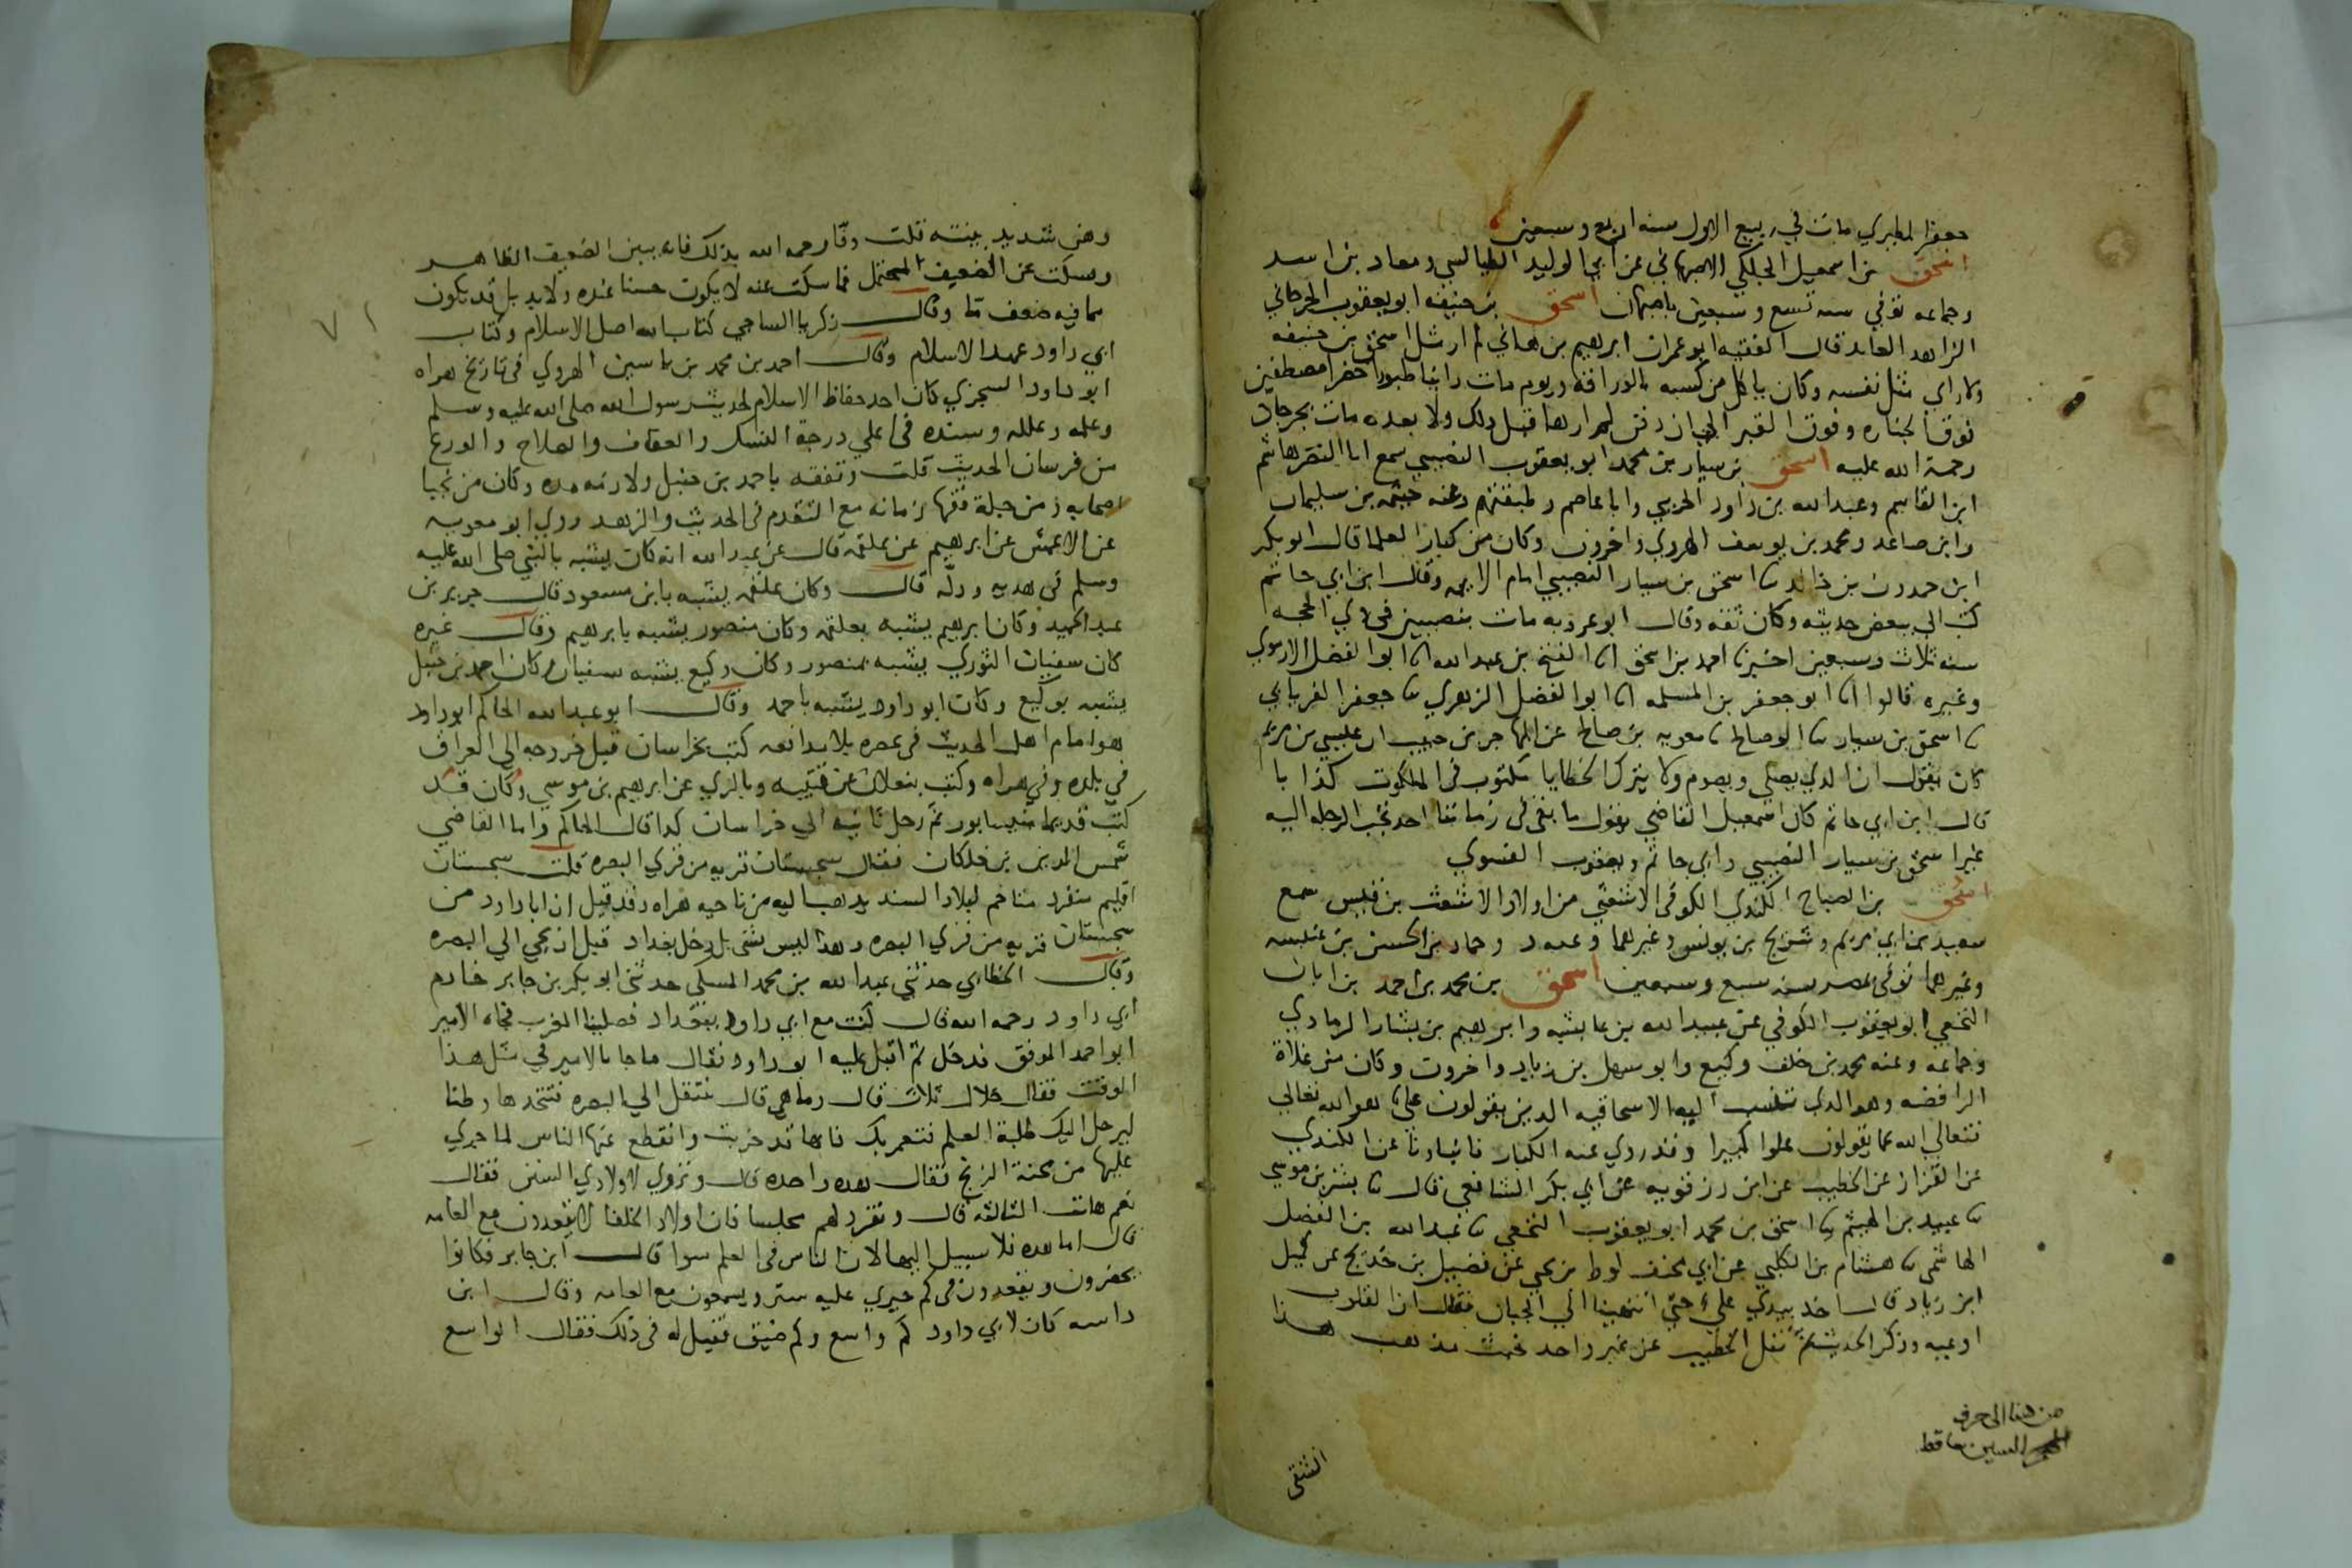 جعفر المطيري مات في ربيع الاول سنه اربع وسبعين
اسحق بن اسمعيل الجلكي الاصبهاني عن ابي الوليد الطيالسي ومعاذ بن اسد
وجماعه توفي سنه تسع وسبعين باصبهان اسحق بن حنيفه ابو يعقوب الجرجاني
الزاهد العابد قال الفقيه ابو عمران ابرهيم بن هاني لم ار مثل اسحق بن حنيفه
ولا راي مثل نفسه وكان ياكل من كسبه بالوراقه ويوم مات راينا طيورا خضرا مصطفين
فوق الجنازه وفوق القبر الى ان دفن لم ارها قبل ذلك ولا بعده مات بجرجان
رحمة الله عليه اسحق بن سيار بن محمد ابو يعقوب النصيبي سمع ابا النضر هاشم
ابن القاسم وعبد الله بن داود الخريبي وابا عاصم وطبقتهم وعنه خيثمه بن سليمان
وابن صاعد ومحمد بن يوسف الهروي واخرون وكان من كبار العلما قال ابو بكر
ابن حمدون بن خالد ثنا اسحق بن سيار النصيبي امام الايمه وقال ابن ابي حاتم
كتب الي ببعض حديثه وكان ثقه وقال ابو عروبه مات بنصيبين في ذي الحجه
سنه ثلاث وسبعين اخبرنا احمد بن اسحق انا الفتح بن عبد الله انا ابو الفضل الارموي
وغيره قالوا انا ابو جعفر بن المسلمه انا ابو الفضل الزهري ثنا جعفر الفريابي
ثنا اسحق بن سيار ثنا ابو صالح ثنا معويه بن صالح عن المهاجر بن حبيب ان عيسى بن مريم
كان يقول ان الذي يصلي ويصوم ولا يترك الخطايا مكتوب في الملكوت كذابا
قال ابن ابي حاتم كان اسمعيل القاضي يقول ما بقي في زماننا احد تجب الرحله اليه
غير اسحق بن سيار النصيبي وابي حاتم ويعقوب الفسوي
اسحق بن الصباح الكندي الكوفي الاشعثي من اولاد الاشعث بن قيس سمع
سعيد بن ابي مريم وشريح بن يونس وغيرهما وعنه د وحماد بن الحسن بن عنبسه
وغيرهما توفي بمصر سنه سبع وسبعين اسحق بن محمد بن احمد بن ابان
النخعي ابو يعقوب الكوفي عن عبيد الله بن عايشه وابرهيم بن بشار الرمادي
وجماعه وعنه محمد بن خلف وكيع وابو سهل بن زياد واخرون وكان من غلاة
الرافضه وهو الذي تنسب اليه الاسحاقيه الذين يقولون علي هو الله تعالى
فتعالى الله عما يقولون علوا كبيرا وقد روى عنه الكبار فانبادنا عن الكندي
عن القزاز عن الخطيب عن ابن رزقويه عن ابي بكر الشافعي قال ثنا بشر بن موسى
ثنا عبيد بن الهيثم ثنا اسحق بن محمد ابو يعقوب النخعي ثنا عبد الله بن الفضل
الهاشمي ثنا هشام بن الكلبي عن ابي مخنف لوط بن يحيى عن فضيل بن خديج عن كميل
ابن زياد قال اخذ بيدي علي حتى انتهينا الى الجبان فقال ان القلوب
اوعيه وذكر الحديث ثم نقل الخطيب عن غير واحد خبث مذهب هذا
من هنا الى حرف
السين ساقط
الشقي
وهن شديد بينته قلت وفا رحمه الله بذلك فانه بين الضعيف الظاهر
وسكت عن الضعيف المحتمل فما سكت عنه لا يكون حسنا عنده ولابد بل قد يكون
مما فيه ضعف ما وقال زكريا الساجي كتاب الله اصل الاسلام وكتاب
ابي داود عهد الاسلام وقال احمد بن محمد بن ياسين الهروي في تاريخ هراه
ابو داود السجزي كان احد حفاظ الاسلام لحديث رسول الله صلى الله عليه وسلم
وعلمه وعلله وسنده في اعلى درجة النسك والعفاف والصلاح والورع
من فرسان الحديث قلت وتفقه باحمد بن حنبل ولازمه مده وكان من نجبا
اصحابه ومن جلة فقها زمانه مع التقدم في الحديث والزهد روى ابو معويه
عن الاعمش عن ابرهيم عن علقمه قال عن عبد الله انه كان يشبه بالنبي صلى الله عليه
وسلم في هديه ودله قال وكان علقمه يشبه بابن مسعود قال جرير بن
عبد الحميد وكان ابرهيم يشبه بعلقمه وكان منصور يشبه بابرهيم وقال غيره
كان سفيان الثوري يشبه بمنصور وكان وكيع يشبه سفيان وكان احمد بن حنبل
يشبه بوكيع وكان ابو داود يشبه باحمد وقال ابو عبد الله الحاكم ابو داود
هو امام اهل الحديث في عصره بلا مدافعه كتب بخراسان قبل خروجه الى العراق
في بلده وفي هراه وكتب ببغلان عن قتيبه وبالري عن ابرهيم بن موسى وكان قد
كتب قديما بنيسابور ثم رحل بابنه الى خراسان كذا قال الحاكم واما القاضي
شمس الدين بن خلكان فقال سجستان قريه من قرى البصره قلت سجستان
اقليم منفرد متاخم لبلاد السند يذهب اليه من ناحيه هراه وقد قيل ان ابا داود من
سجستان قريه من قرى البصره وهذا ليس بشي بل دخل بغداد قبل ان يجي الى البصره
وقال الخطابي حدثني عبد الله بن محمد المسكي حدثني ابو بكر بن جابر خادم
ابي داود رحمه الله قال كنت مع ابي داود ببغداد فصلينا المغرب فجاه الامير
ابو احمد الموفق فدخل ثم اقبل عليه ابو داود فقال ما جا بالامير في مثل هذا
الوقت فقال خلال ثلاث قال وما هي قال تنتقل الى البصره فتتخذها وطنا
ليرحل اليك طلبة العلم فتعمر بك فانها قد خربت وانقطع عنها الناس لما جرى
عليها من محنة الزنج فقال هذه واحده قال وتروي لاولادي السنن فقال
نعم هات الثالثه قال وتفرد لهم مجلسا فان اولاد الخلفا لا يقعدون مع العامه
قال اما هذه فلا سبيل اليها لان الناس في العلم سوا قال ابن جابر فكانوا
يحضرون ويقعدون في كم حيري عليه ستر ويسمعون مع العامه وقال ابن
داسه كان لابي داود كم واسع وكم ضيق فقيل له في ذلك فقال الواسع